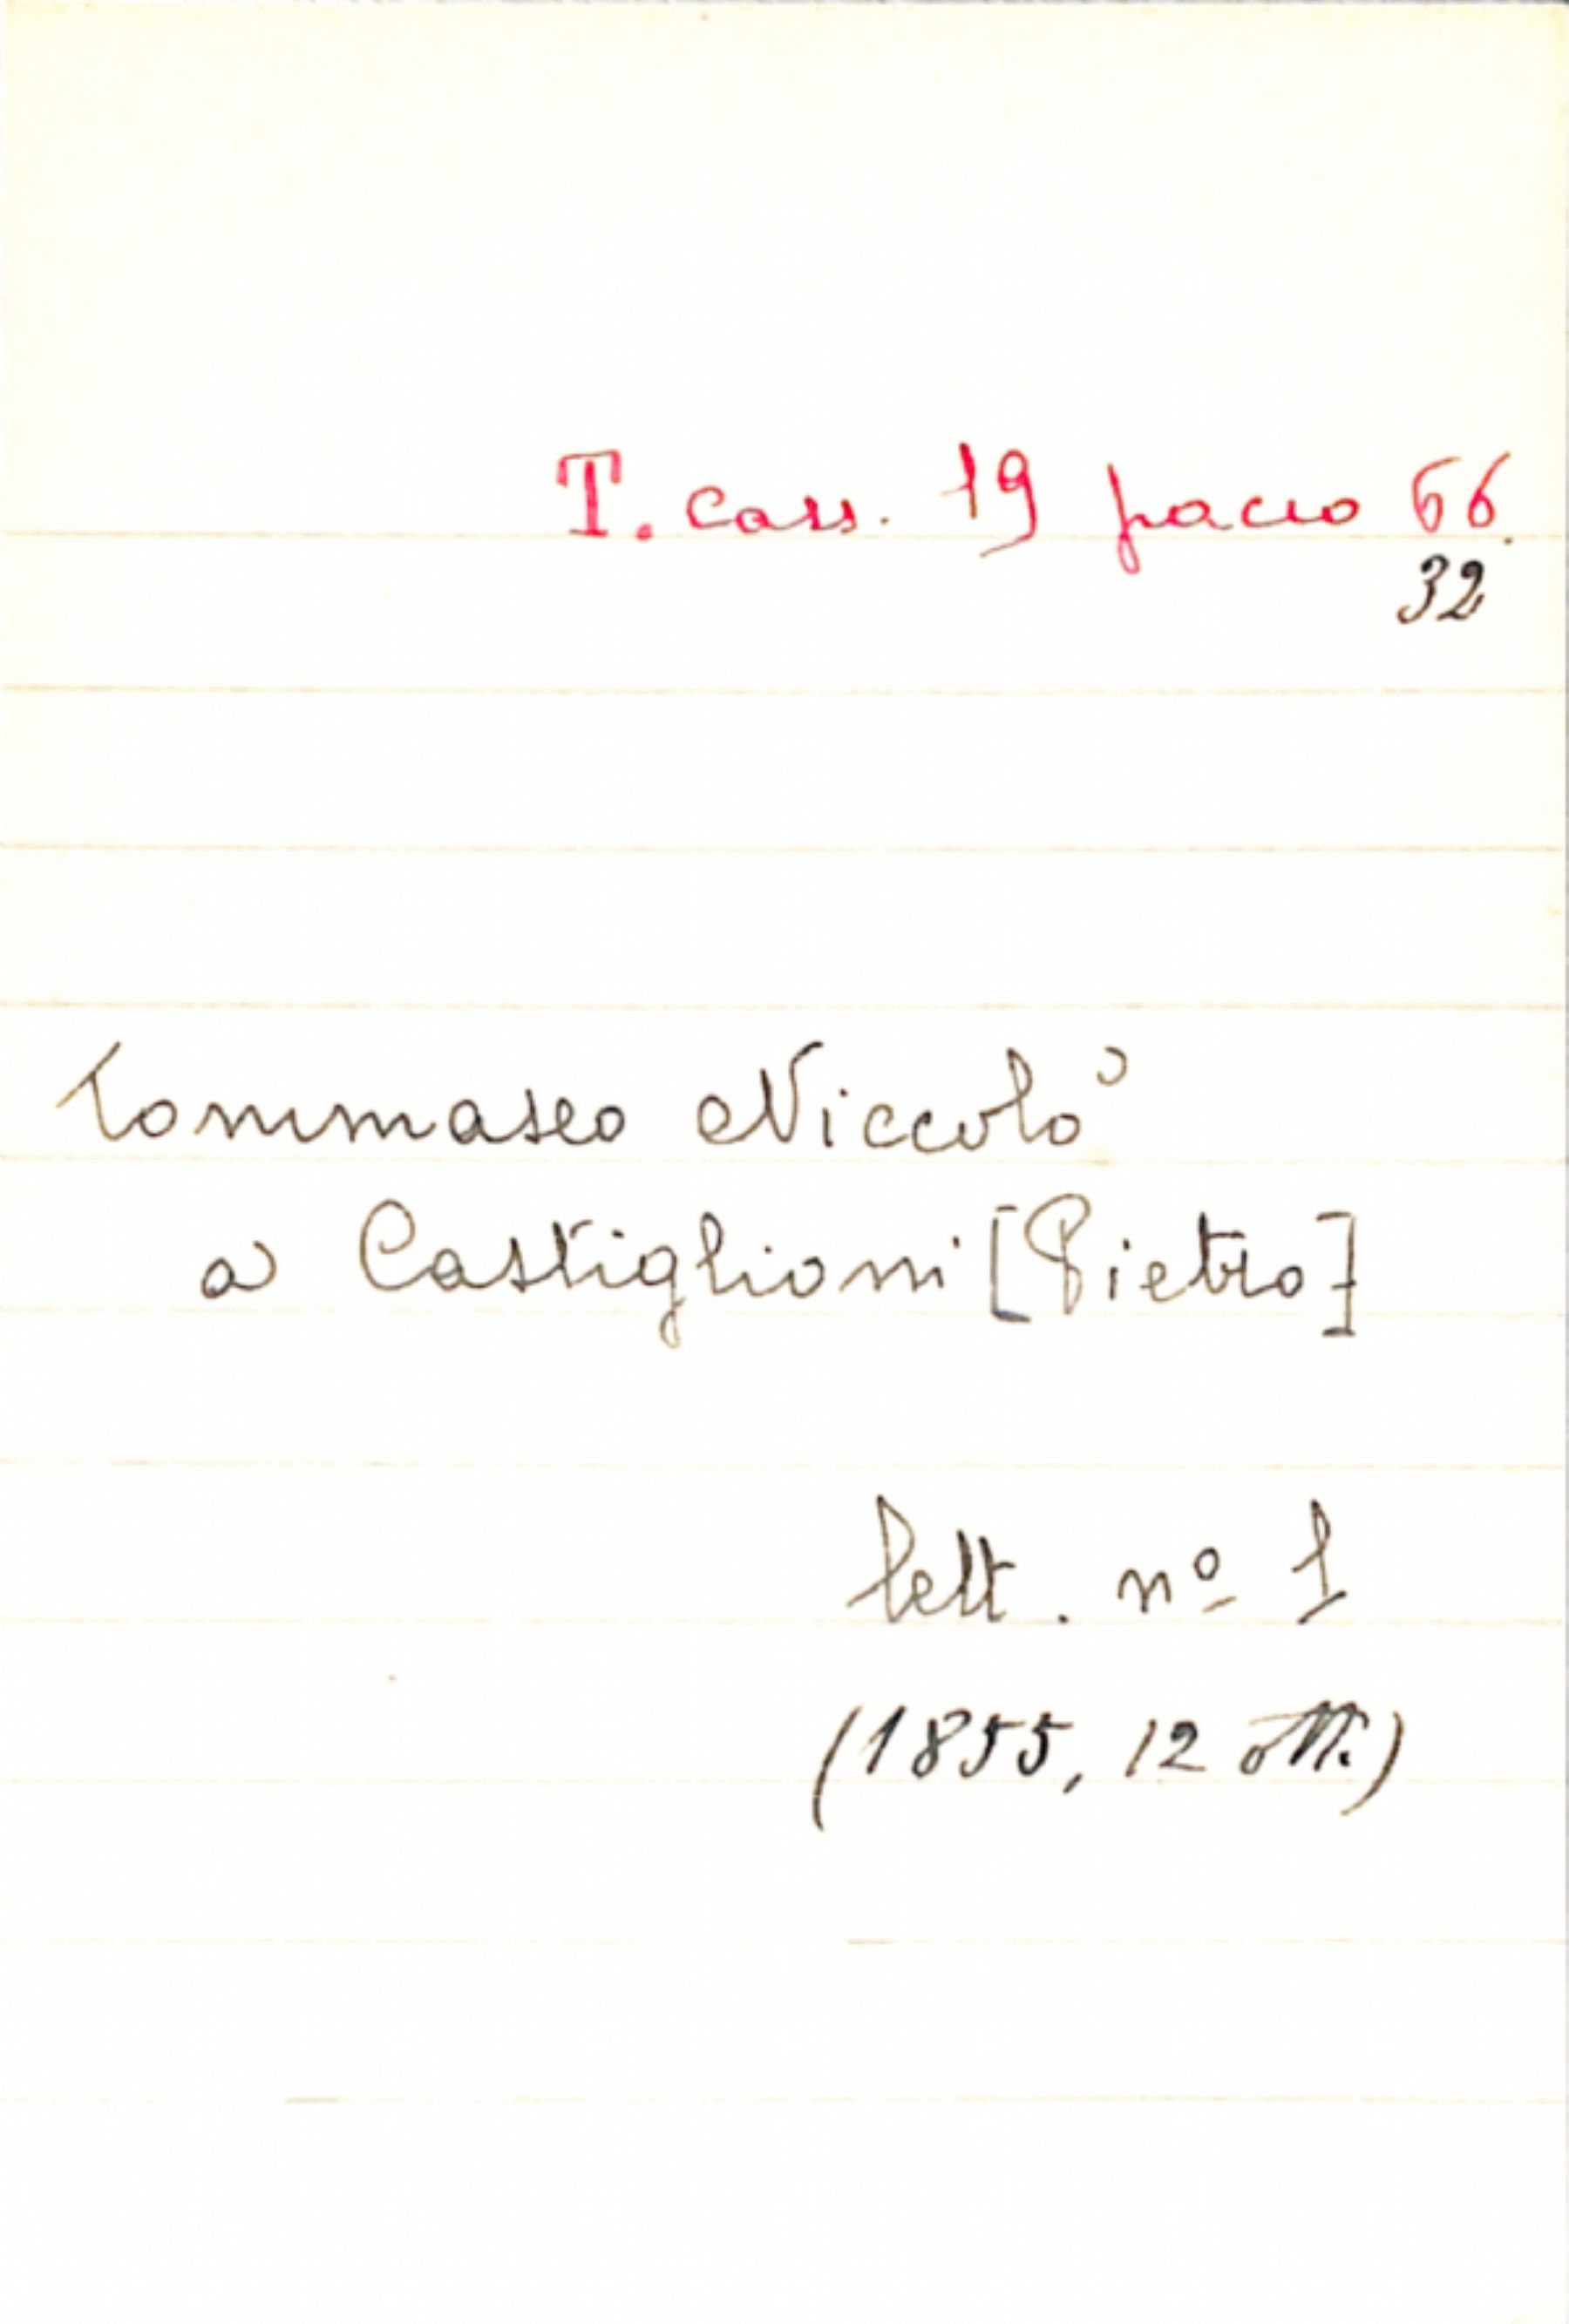 T. cass. 19 pacco 66.
32
Tommaseo Niccolò
a Castiglioni [Pietro]
lett. nº 1
(1855, 12 ott.)